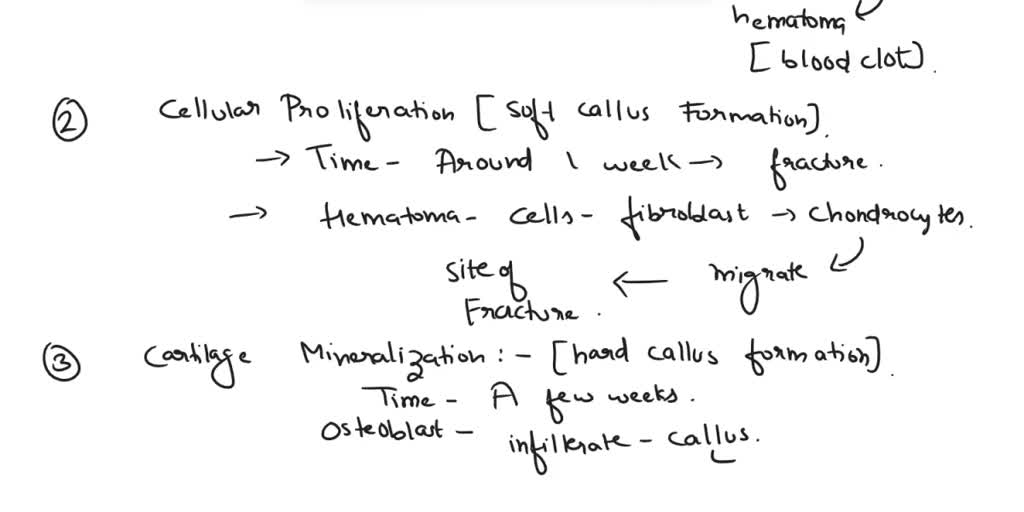 hematoma
[blood clot].
② Cellular Proliferation [Soft callus Formation].
→ Time - Around 1 week → fracture.
→ Hematoma - cells - fibroblast → chondrocytes.
site of ← migrate
Fracture.
③ Cartilage Mineralization :- [hard callus formation].
Time - A few weeks.
Osteoblast - infilterate - callus.